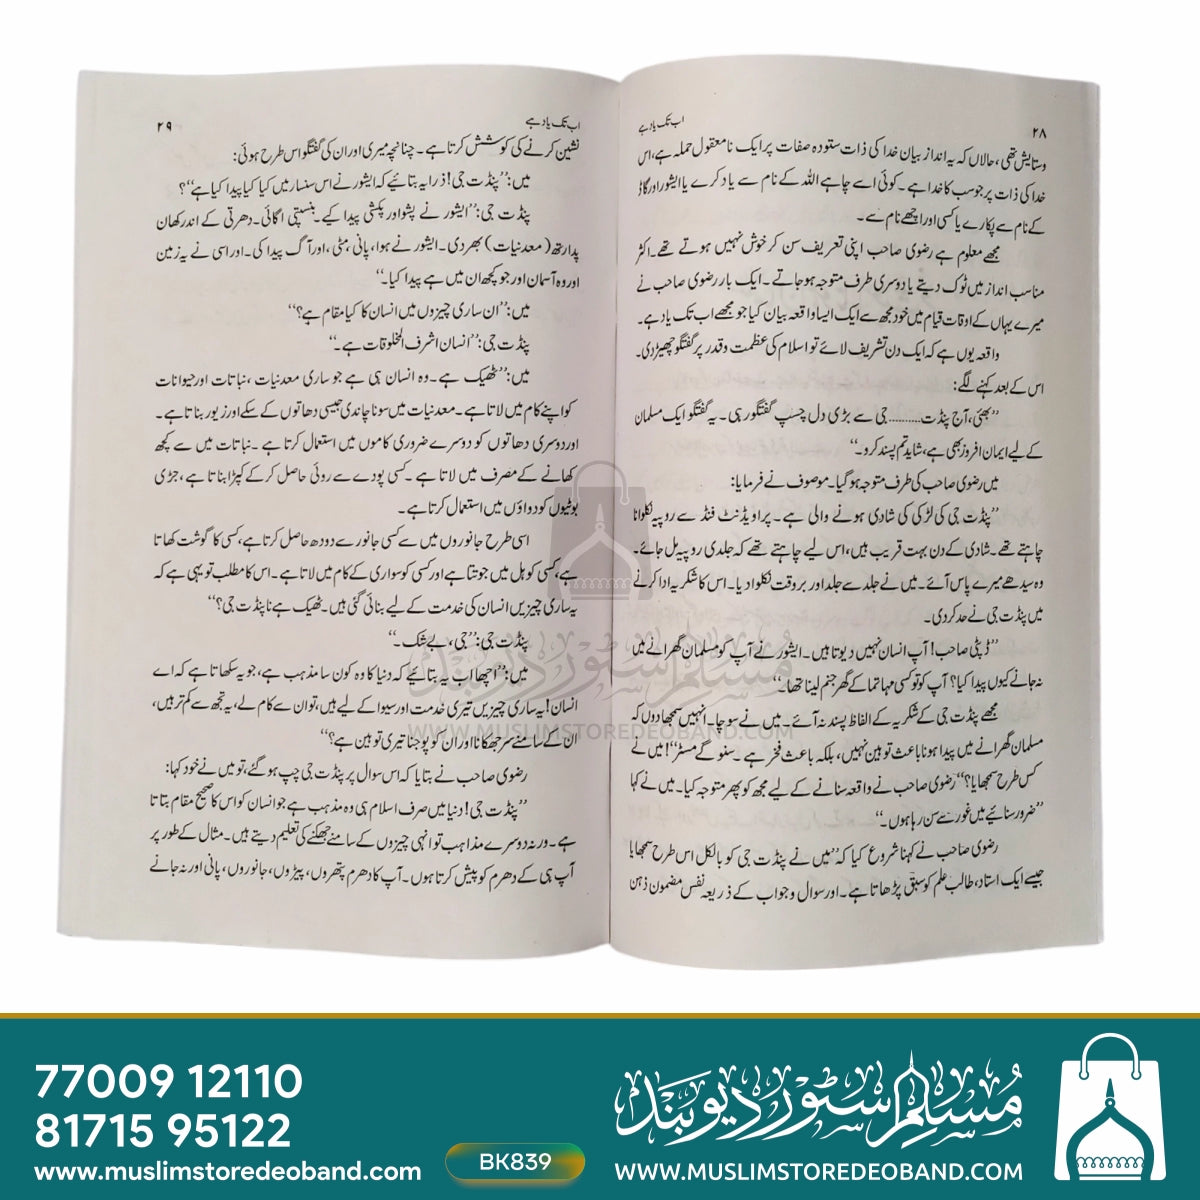 ۲۸
اب تک یاد ہے
وستایش تھی، حالاں کہ یہ انداز بیان خدا کی ذات ستودہ صفات پر ایک نامعقول حملہ ہے، اس
خدا کی ذات پر جو سب کا خدا ہے۔ کوئی اسے چاہے اللہ کے نام سے یاد کرے یا ایشور اور گاڈ
کے نام سے پکارے یا کسی اور اچھے نام سے۔
مجھے معلوم ہے رضوی صاحب اپنی تعریف سن کر خوش نہیں ہوتے تھے۔ اکثر
مناسب انداز میں ٹوک دیتے یا دوسری طرف متوجہ ہو جاتے۔ ایک بار رضوی صاحب نے
میرے یہاں کے اوقات قیام میں خود مجھ سے ایک ایسا واقعہ بیان کیا جو مجھے اب تک یاد ہے۔
واقعہ یوں ہے کہ ایک دن تشریف لائے تو اسلام کی عظمت و قدر پر گفتگو چھیڑ دی۔
اس کے بعد کہنے لگے:
’’بھئی، آج پنڈت......... جی سے بڑی دل چسپ گفتگو رہی۔ یہ گفتگو ایک مسلمان
کے لیے ایمان افروز بھی ہے، شاید تم پسند کرو۔‘‘
میں رضوی صاحب کی طرف متوجہ ہو گیا۔ موصوف نے فرمایا:
’’پنڈت جی کی لڑکی کی شادی ہونے والی ہے۔ پراویڈنٹ فنڈ سے روپیہ نکلوانا
چاہتے تھے۔ شادی کے دن بہت قریب ہیں، اس لیے چاہتے تھے کہ جلدی روپیہ مل جائے۔
وہ سیدھے میرے پاس آئے۔ میں نے جلد سے جلد اور بروقت نکلوا دیا۔ اس کا شکریہ ادا کرنے
میں پنڈت جی نے حد کر دی۔
’’ڈپٹی صاحب! آپ انسان نہیں دیوتا ہیں۔ ایشور نے آپ کو مسلمان گھرانے میں
نہ جانے کیوں پیدا کیا؟ آپ کو تو کسی مہاتما کے گھر جنم لینا تھا۔‘‘
مجھے پنڈت جی کے شکریہ کے الفاظ پسند نہ آئے۔ میں نے سوچا۔ انہیں سمجھا دوں کہ
مسلمان گھرانے میں پیدا ہونا باعث توہین نہیں، بلکہ باعث فخر ہے۔ سنو گے مسٹر‘‘! میں نے
کس طرح سمجھایا؟‘‘ رضوی صاحب نے واقعہ سنانے کے لیے مجھ کو پھر متوجہ کیا۔ میں نے کہا
’’ضرور سنائیے میں غور سے سن رہا ہوں۔‘‘
رضوی صاحب نے کہنا شروع کیا کہ ’’میں نے پنڈت جی کو بالکل اس طرح سمجھایا
جیسے ایک استاد، طالب علم کو سبق پڑھاتا ہے۔ اور سوال و جواب کے ذریعہ نفس مضمون ذہن
اب تک یاد ہے
۲۹
نشین کرنے کی کوشش کرتا ہے۔ چنانچہ میری اور ان کی گفتگو اس طرح ہوئی:
میں: ’’پنڈت جی! ذرا یہ بتائیے کہ ایشور نے اس سنسار میں کیا کیا پیدا کیا ہے‘‘؟
پنڈت جی: ’’ایشور نے پشو اور پکشی پیدا کیے۔ بنسپتی اگائی۔ دھرتی کے اندر کھان
پدارتھ (معدنیات) بھر دی۔ ایشور نے ہوا، پانی، مٹی، اور آگ پیدا کی۔ اور اسی نے یہ زمین
اور وہ آسمان اور جو کچھ ان میں ہے پیدا کیا۔‘‘
میں: ’’ان ساری چیزوں میں انسان کا کیا مقام ہے؟‘‘
پنڈت جی: ’’انسان اشرف المخلوقات ہے۔‘‘
میں: ’’ٹھیک ہے۔ وہ انسان ہی ہے جو ساری معدنیات، نباتات اور حیوانات
کو اپنے کام میں لاتا ہے۔ معدنیات میں سونا چاندی جیسی دھاتوں کے سکے اور زیور بناتا ہے۔
اور دوسری دھاتوں کو دوسرے ضروری کاموں میں استعمال کرتا ہے۔ نباتات میں سے کچھ
کھانے کے مصرف میں لاتا ہے۔ کسی پودے سے روئی حاصل کر کے کپڑا بناتا ہے، جڑی
بوٹیوں کو دواؤں میں استعمال کرتا ہے۔
اسی طرح جانوروں میں سے کسی جانور سے دودھ حاصل کرتا ہے، کسی کا گوشت کھاتا
ہے، کسی کو ہل میں جوتتا ہے اور کسی کو سواری کے کام میں لاتا ہے۔ اس کا مطلب تو یہی ہے کہ
یہ ساری چیزیں انسان کی خدمت کے لیے بنائی گئی ہیں۔ ٹھیک ہے نا پنڈت جی؟‘‘
پنڈت جی: ’’جی، بے شک۔‘‘
میں: ’’اچھا اب یہ بتائیے کہ دنیا کا وہ کون سا مذہب ہے، جو یہ سکھاتا ہے کہ اے
انسان! یہ ساری چیزیں تیری خدمت اور سیوا کے لیے ہیں، تو ان سے کام لے، یہ تجھ سے کم تر ہیں،
ان کے سامنے سر جھکانا اور ان کو پوجنا تیری توہین ہے؟‘‘
رضوی صاحب نے بتایا کہ اس سوال پر پنڈت جی چپ ہو گئے، تو میں نے خود کہا:
’’پنڈت جی! دنیا میں صرف اسلام ہی وہ مذہب ہے جو انسان کو اس کا صحیح مقام بتاتا
ہے۔ ورنہ دوسرے مذاہب تو انہی چیزوں کے سامنے جھکنے کی تعلیم دیتے ہیں۔ مثال کے طور پر
آپ ہی کے دھرم کو پیش کرتا ہوں۔ آپ کا دھرم پتھروں، پیڑوں، جانوروں، پانی اور نہ جانے
مسلم سٹور دیوبند
WWW.MUSLIMSTOREDEOBAND.COM
77009 12110
81715 95122
www.muslimstoredeoband.com
BK839
مسلم سٹور دیوبند
WWW.MUSLIMSTOREDEOBAND.COM